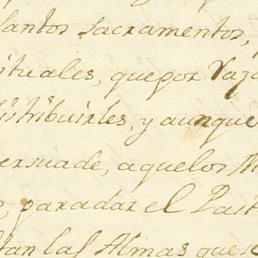 Santos Sacramentos,
ituales, que por
distribuirles, y aunque
persuade, aquelos
para dar el Past
tan las Almas que